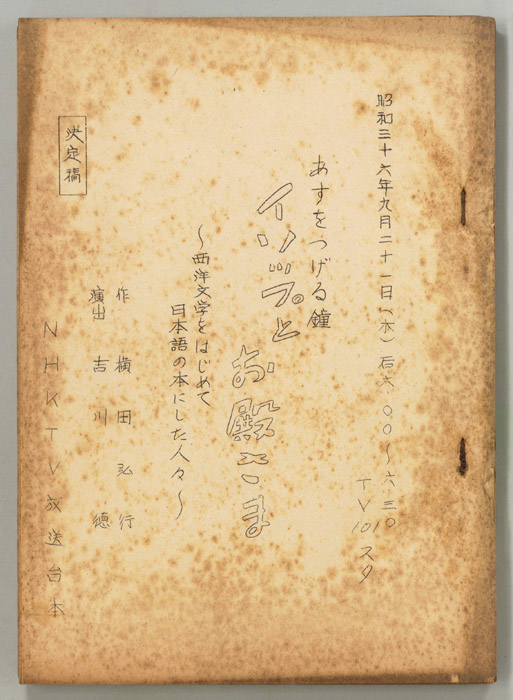 昭和三十六年九月二十一日(木)后六.〇〇〜六.三〇
TV101スタ
あすをつげる鐘
イソップと
お殿さま
〜西洋文学をはじめて
日本語の本にした人々〜
作 横田弘行
演出 吉川徳
決定稿
NHKTV放送台本